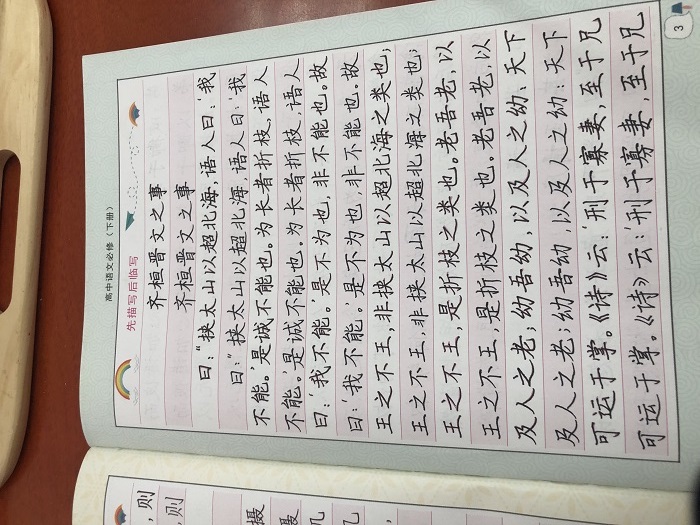 高中语文必修（下册）
先描写后临写
齐桓晋文之事
齐桓晋文之事
曰：“挟太山以超北海，语人曰：‘我
曰：“挟太山以超北海，语人曰：‘我
不能。’是诚不能也。为长者折枝，语人
不能。’是诚不能也。为长者折枝，语人
曰：‘我不能。’是不为也，非不能也。故
曰：‘我不能。’是不为也，非不能也。故
王之不王，非挟太山以超北海之类也；
王之不王，非挟太山以超北海之类也；
王之不王，是折枝之类也。老吾老，以
王之不王，是折枝之类也。老吾老，以
及人之老；幼吾幼，以及人之幼：天下
及人之老；幼吾幼，以及人之幼：天下
可运于掌。《诗》云：‘刑于寡妻，至于兄
可运于掌。《诗》云：‘刑于寡妻，至于兄
3
，则
，则
摄
摄
几
几